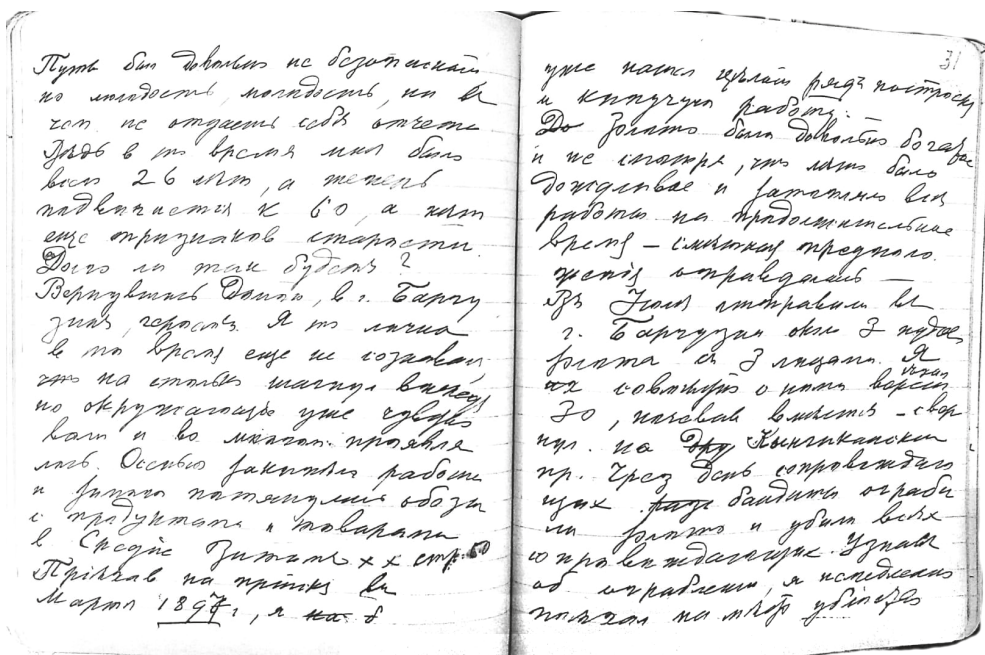 Путь был довольно не безопасный
но молодость, молодость, ни в
чем не отдает себя отчета
Ведь в то время мне было
всего 26 лѣт, а теперь
подвигается к 60, а нѣт
еще признаков старости.
Долго ли так будет?
Вернувшись Домой, в г. Баргу
зин, героем. Я то лично
в то время еще не сознавал,
что на столько шагнул вперед
но окружающие уже чувство
вали и во многом проявля
лось. Осенью закипела работа
и зимою потянулись обозы
с продуктами и товарами
в Средне Витим xx стр. 50
Пріехав на пріиск в
Марте 1897 г, я на б
31
уже нашел цѣлый ряд построек
и кипучую работу.
До Золото было довольно богатое
и не смотря, что лѣто было
дождливое и затопило все
работы на продолжительное
время – смѣтная предполо
женія оправдались –
Из Июля отправили в
г. Баргузин около 3 пудов
золота с 3 лицами. Я ѣхал
их совмѣстно с ними верст
30, ночевав вмѣстѣ – свер
нул на Кынгиканский
пр. Чрез день сопровождаю
щих бандиты ограби
ли золото и убили всѣх
сопровождающих. Узнав
об ограблении, я немедленно
поѣхал на мѣсто убійства